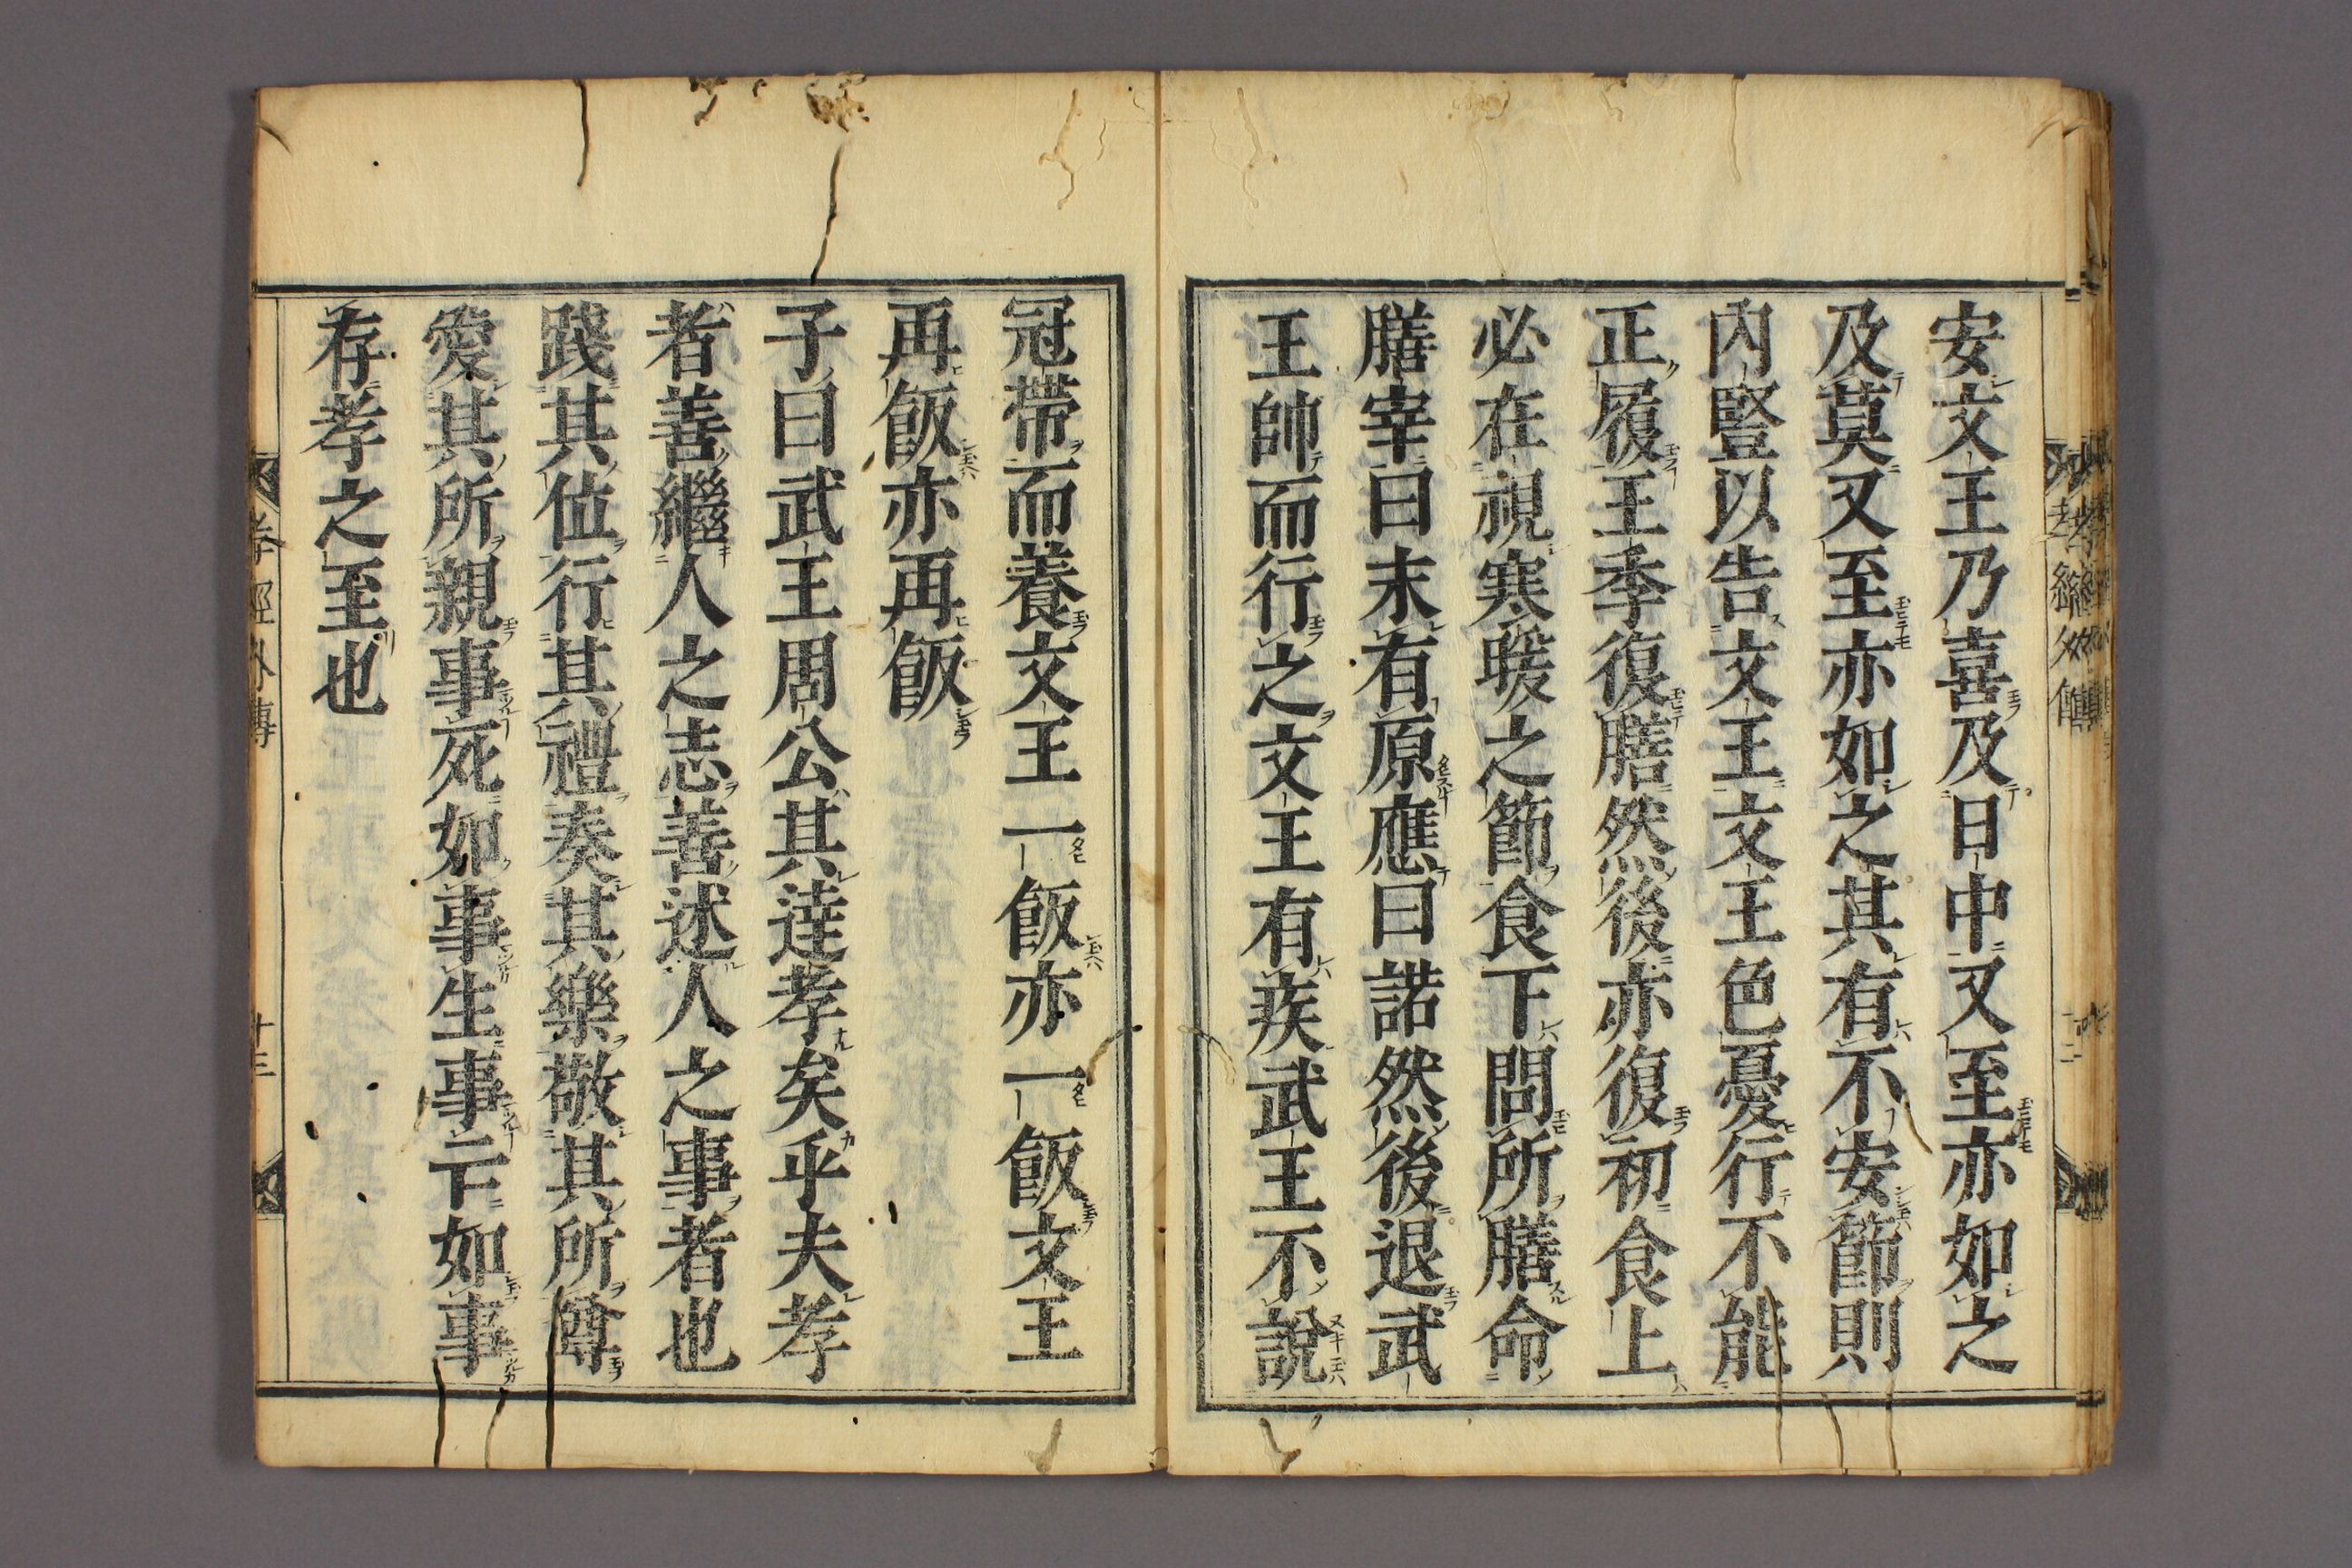 安文王乃喜及日中又至亦如之
及莫又至亦如之其有不安節則
內豎以告文王文王色憂行不能
正履王季復膳然後亦復初食上
必在視寒暖之節食下問所膳命
膳宰曰末有原應曰諾然後退武
王帥而行之文王有疾武王不說
冠帶而養文王一飯亦一飯文王
再飯亦再飯
子曰武王周公其達孝矣乎夫孝
者善繼人之志善述人之事者也
踐其位行其禮奏其樂敬其所尊
愛其所親事死如事生事亡如事
存孝之至也
孝經外傳
十三